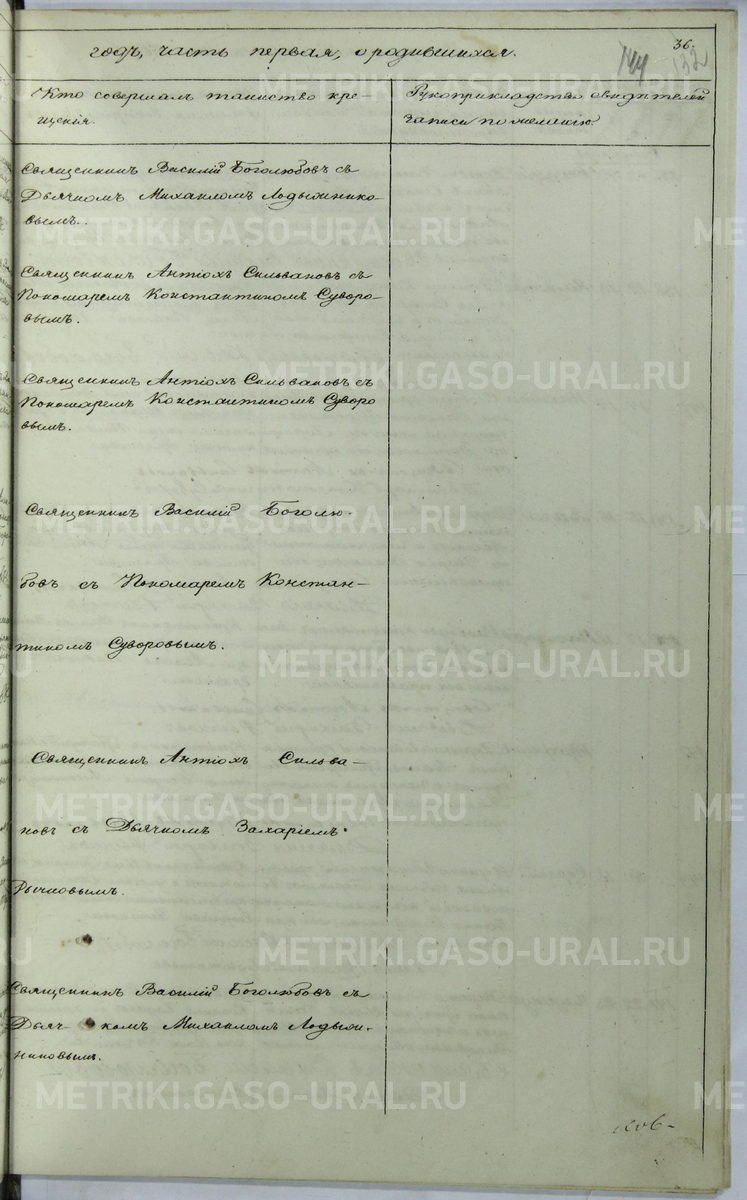 36.
годъ, часть первая, о родившихся.
144 132
Кто совершалъ таинство кре-
щенія.
Рукоприкладство свидѣтелей
записи по желанію.
Священникъ Василій Боголюбовъ съ
Дьячкомъ Михаиломъ Лодыжнико-
вымъ.
Священникъ Антіохъ Сильвановъ съ
Пономаремъ Константиномъ Суворо-
вымъ.
Священникъ Антіохъ Сильвановъ съ
Пономаремъ Константиномъ Суворо
вымъ.
Священникъ Василій Боголю-
бовъ съ Пономаремъ Констан-
тиномъ Суворовымъ.
Священникъ Антіохъ Сильва-
новъ съ Дьячкомъ Захаріемъ
Рычковымъ.
Священникъ Василій Боголюбовъ съ
Дьяч- комъ Михаиломъ Лодыж-
никовымъ.
METRIKI.GASO-URAL.RU